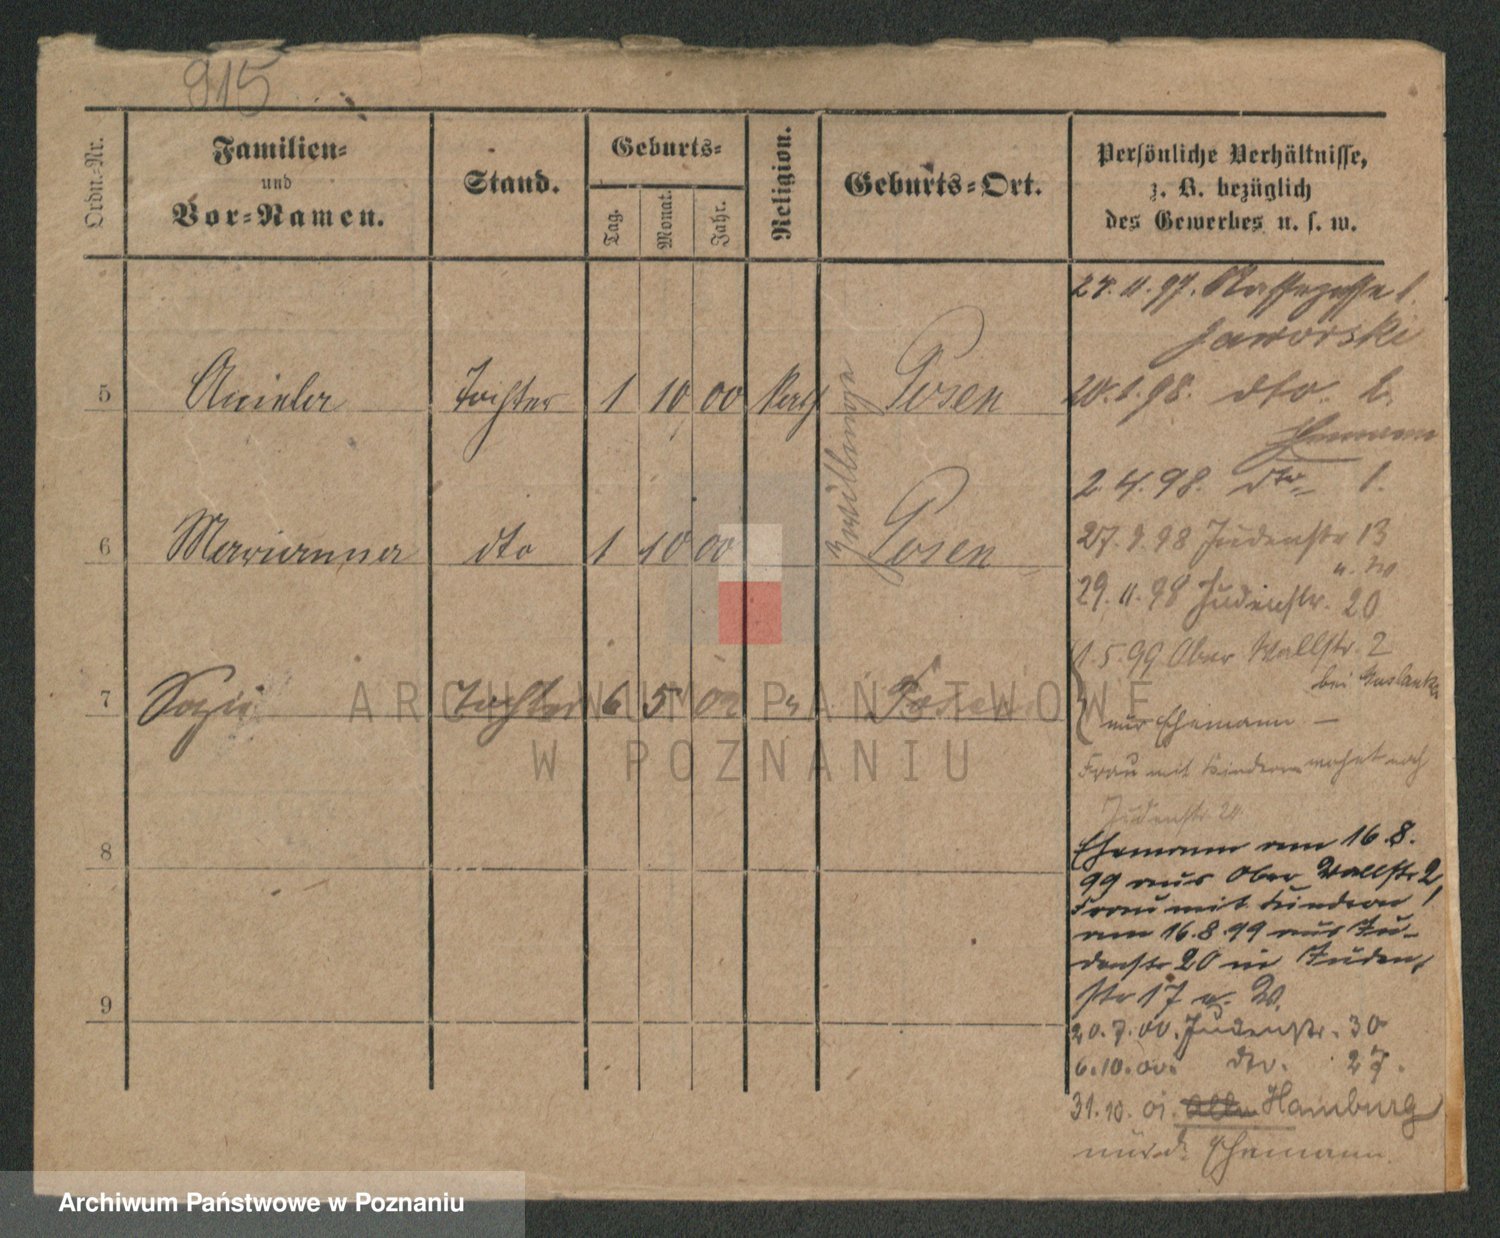 915
Ordn.-Nr.
Familien-
und
Vor-Namen.
Stand.
Geburts-
Tag.
Monat.
Jahr.
Religion.
Geburts-Ort.
Persönliche Verhältnisse,
z. B. bezüglich
des Gewerbes u. s. w.
5 Aniela Tochter 1 10 00 Kath Posen
Zwillinge
6 Marianna dto 1 10 00 Posen
7 Tochter 6 5 02 Posen
8
9
27.11.97.
Jaworski
20.1.98. dto. b.
2 4. 98. dto
27.9.98 Judenstr 13
u. 20
29.11.98 Judenstr. 20
1.5.99 Ober Wallstr. 2
bei
nur Ehemann —
Frau mit Kindern wohnt noch
Judenstr. 20
Ehemann am 16.8.
99 aus Ober Wallstr 2,
Frau mit Kindern
am 16.8.99 aus Ju-
denstr 20 in Juden
str 17 a. W.
20.7.00. Judenstr. 30
6.10.00. dto. 27.
31.10.01. Hamburg
nur d. Ehemann.
ARCHIWUM PAŃSTWOWE
W POZNANIU
Archiwum Państwowe w Poznaniu